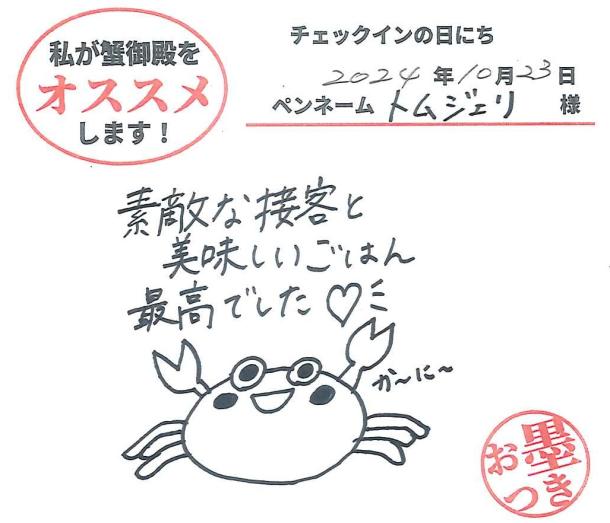 私が蟹御殿を
オススメ
します！
チェックインの日にち
2024年10月23日
ペンネーム トムジェリ 様
素敵な接客と
美味しいごはん
最高でした♡
か〜に〜
お墨つき